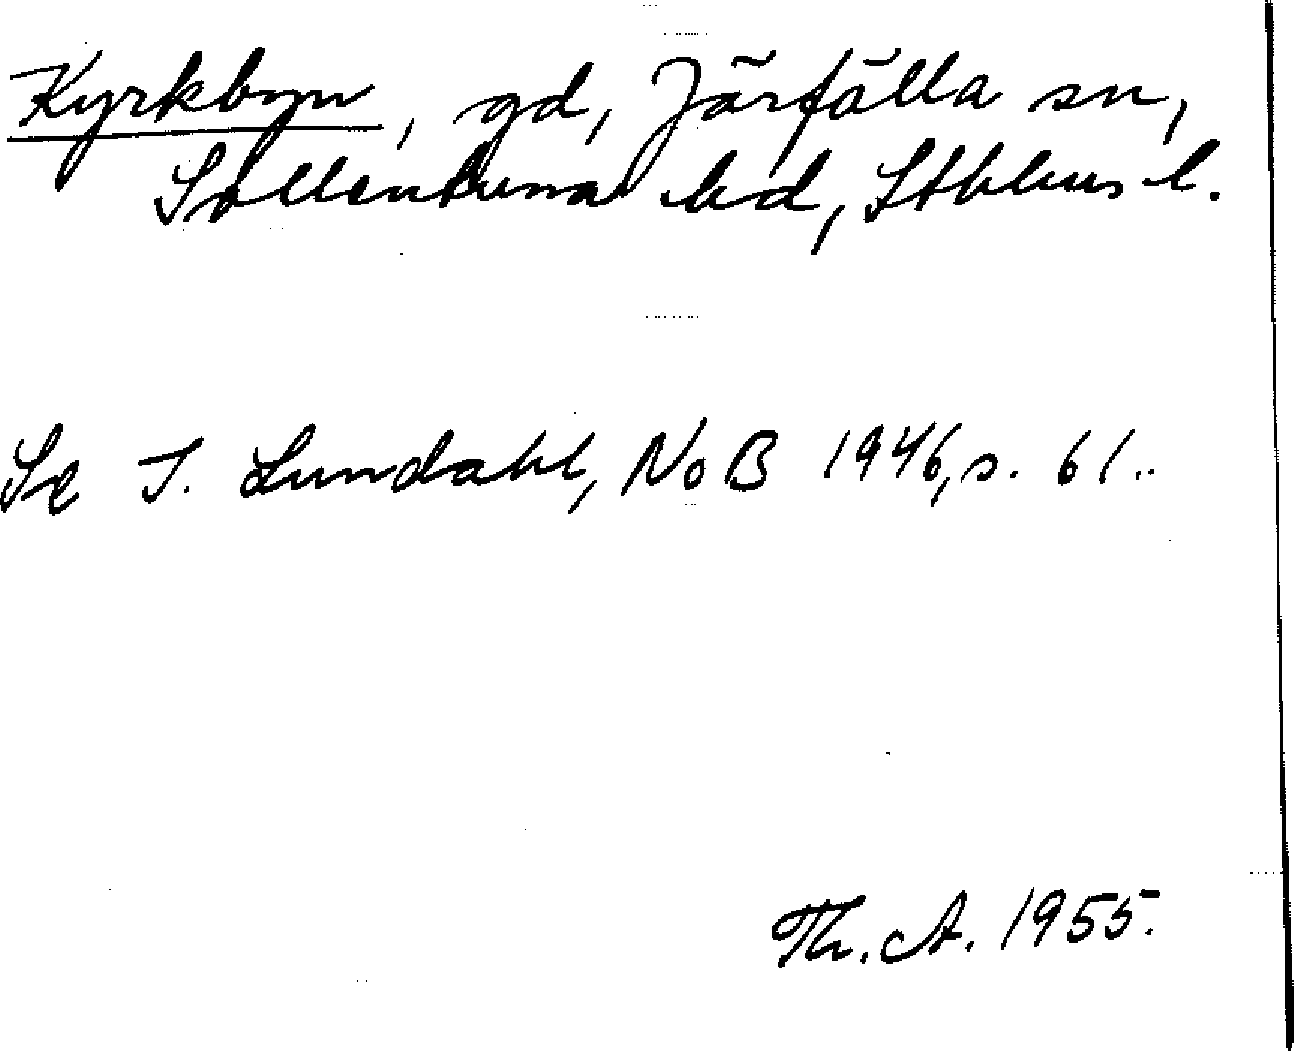 Kyrkbyn, gd, Järfälla sn,
Sollentuna hd, Sthlms l.
Se I. Lundahl, NoB 1946, s. 61..
Th. A. 1955.